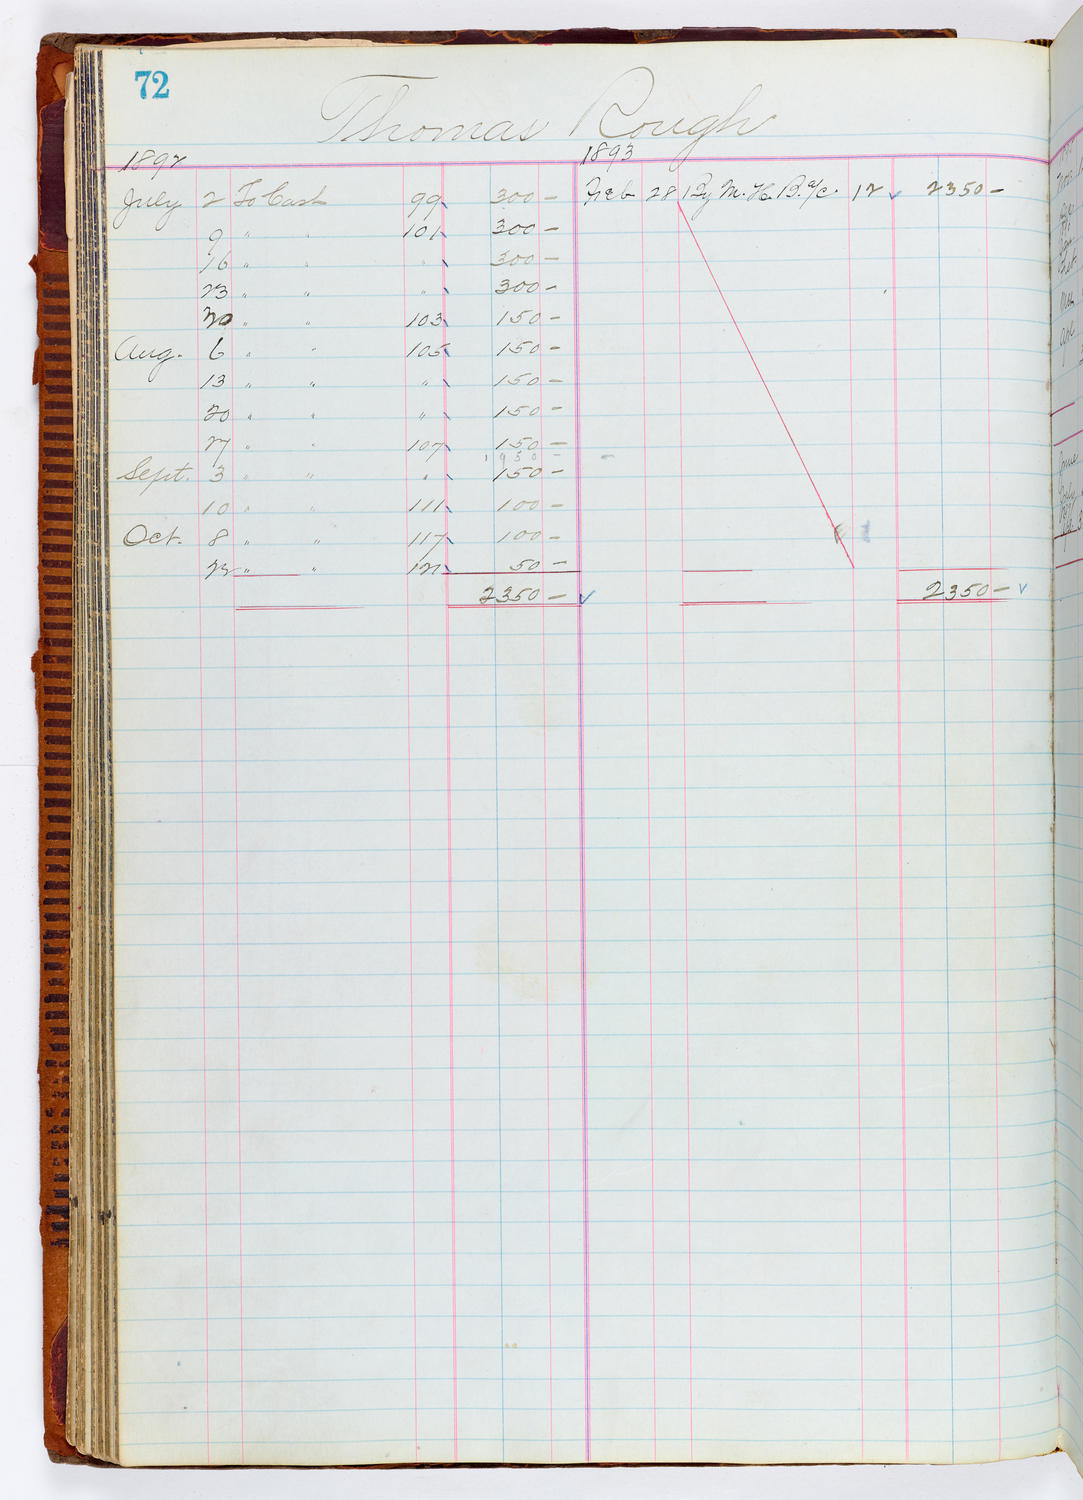 72
Thomas Rough
1892 1893
July 2 To Cash 99 300 – Feb 28 By M. H. B. a/c. 12 ✓ 2350 –
9 " " 101 300 –
16 " " " 300 –
23 " " " 300 –
30 " " 103 150 –
Aug. 6 " " 105 150 –
13 " " " 150 –
20 " " " 150 –
27 " " 107 150 –
1950 –
Sept. 3 " " " 150 –
10 " " 111 100 –
Oct. 8 " " 117 100 –
" " 121 50 –
2350 – ✓ 2350 – ✓